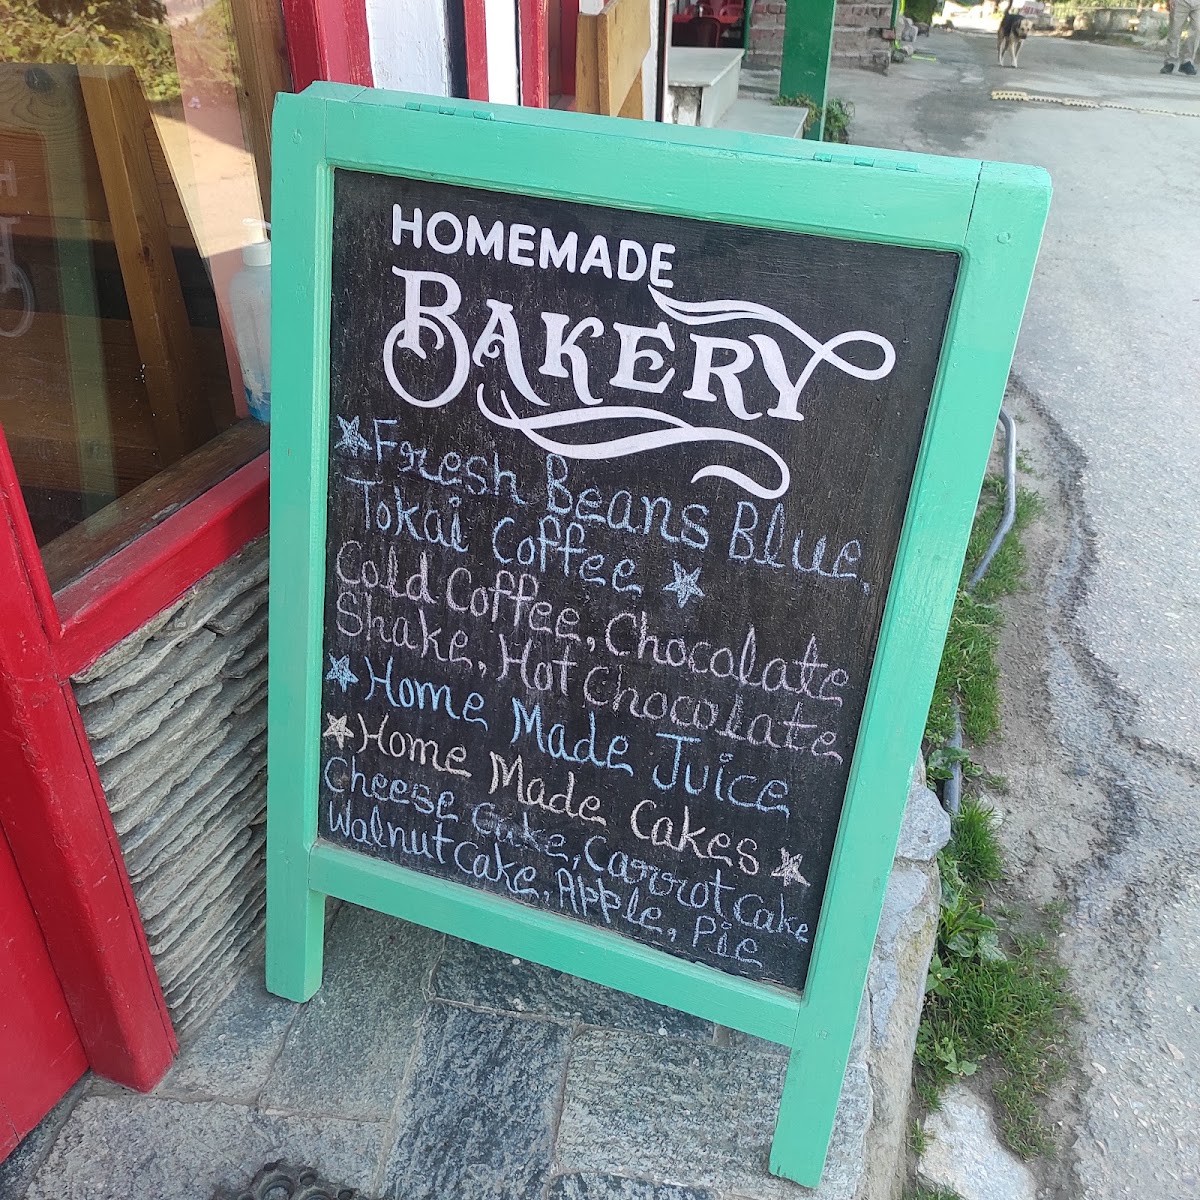 HOMEMADE
BAKERY
Fresh Beans Blue,
Tokai Coffee
Cold Coffee, Chocolate
Shake, Hot Chocolate
Home Made Juice
Home Made Cakes
Cheese Cake, Carrot Cake
Walnut Cake, Apple, Pie